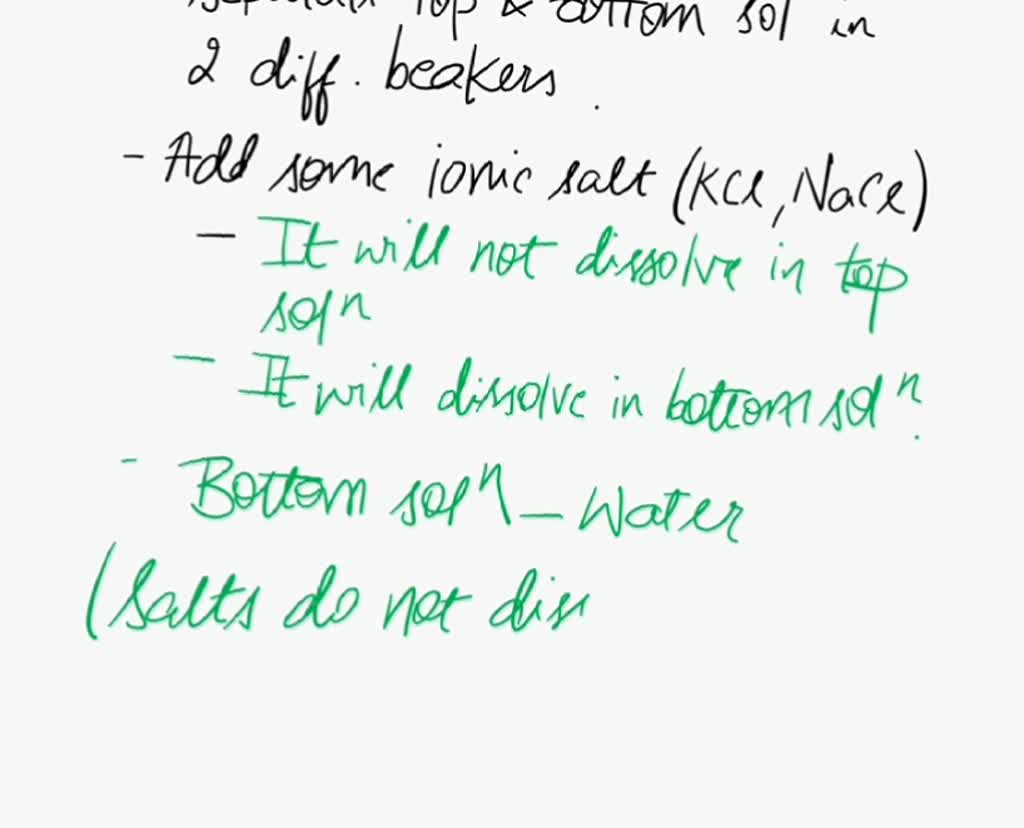 Top & bottom sol in
2 diff. beakers.
- Add some ionic salt (KCl, NaCl)
- It will not dissolve in top
solⁿ
- It will dissolve in bottom solⁿ.
- Bottom solⁿ - Water
(Salts do not diss